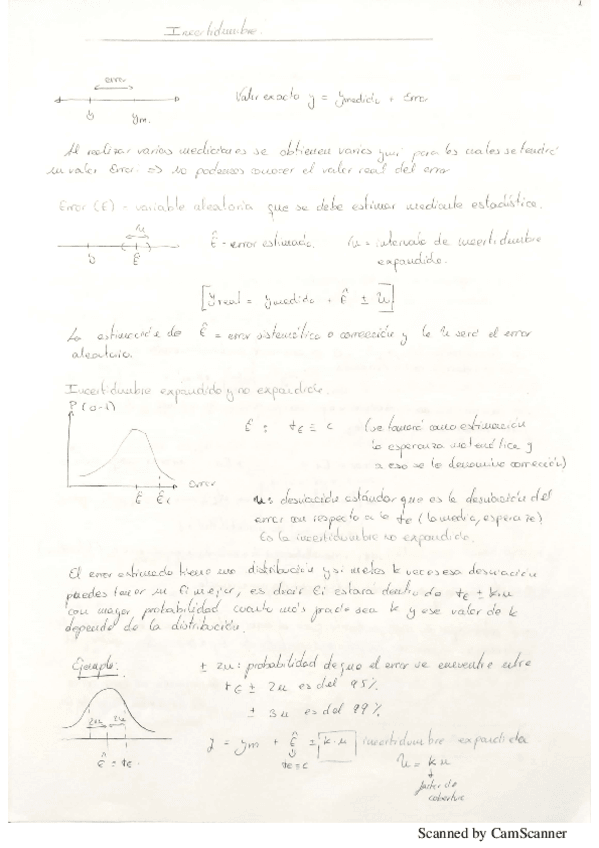 Incertidumbre.
error
y ym.
Valor exacto y = ymedida + Error
Al realizar varias mediciones se obtienen varios ymi para los cuales se tendrá
un valor Error. => no podemos conocer el valor real del error
Error (E) - variable aleatoria que se debe estimar mediante estadística.
u
y Ê
Ê - error estimado. U = intervalo de incertidumbre
expandida.
[yreal = ymedida + Ê ± U]
La estimación de Ê = error sistemático o corrección y la U será el error
aleatorio.
Incertidumbre expandida y no expandida.
P (0-1)
Error
Ê Ei
(se tomará como estimación
la esperanza matemática y
a eso se le denomina corrección)
u: desviación estándar que es la desviación del
error con respecto a la (la media, esperanza)
Es la incertidumbre no expandida.
El error estimado tiene una distribución y si metes k veces esa desviación
puedes tener un Ei mejor, es decir Ei estará dentro de ± k.u
con mayor probabilidad cuanto más grande sea k y ese valor de k
depende de la distribución.
Ejemplo:
2u 2u
± 2u: probabilidad de que el error se encuentre entre
± 2u es del 95%
± 3u es del 99%
y = ym + Ê ± k.u incertidumbre expandida
U = k u
factor de
cobertura
Scanned by CamScanner